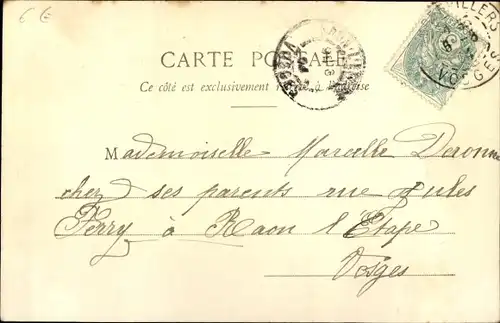 6 €
CARTE POSTALE
Ce côté est exclusivement réservé à l'adresse
VOSGES
VILLERS
VOSGES
Mademoiselle Marcelle
chez ses parents rue Jules
Ferry à Raon l'Etape
Vosges